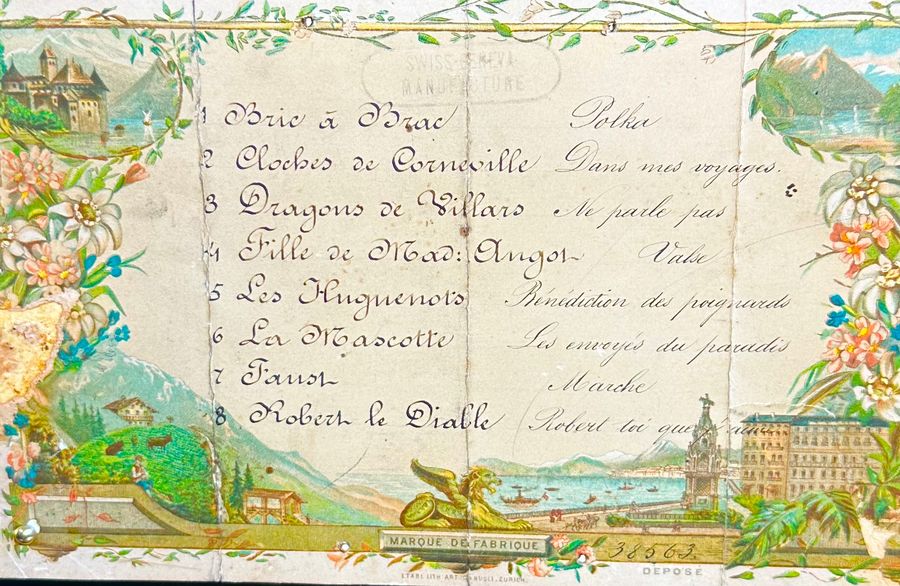 SWISS-GENEVA
MANUFACTURE
1 Bric à Brac Polka
2 Cloches de Corneville Dans mes voyages.
3 Dragons de Villars Ne parle pas
4 Fille de Mad: Angot Valse
5 Les Huguenots Bénédiction des poignards
6 La Mascotte Les envoyés du paradis
7 Faust Marche
8 Robert le Diable Robert toi que
MARQUE DE FABRIQUE
38563.
DÉPOSÉ
ETABL. LITH. ART. ZURICH.